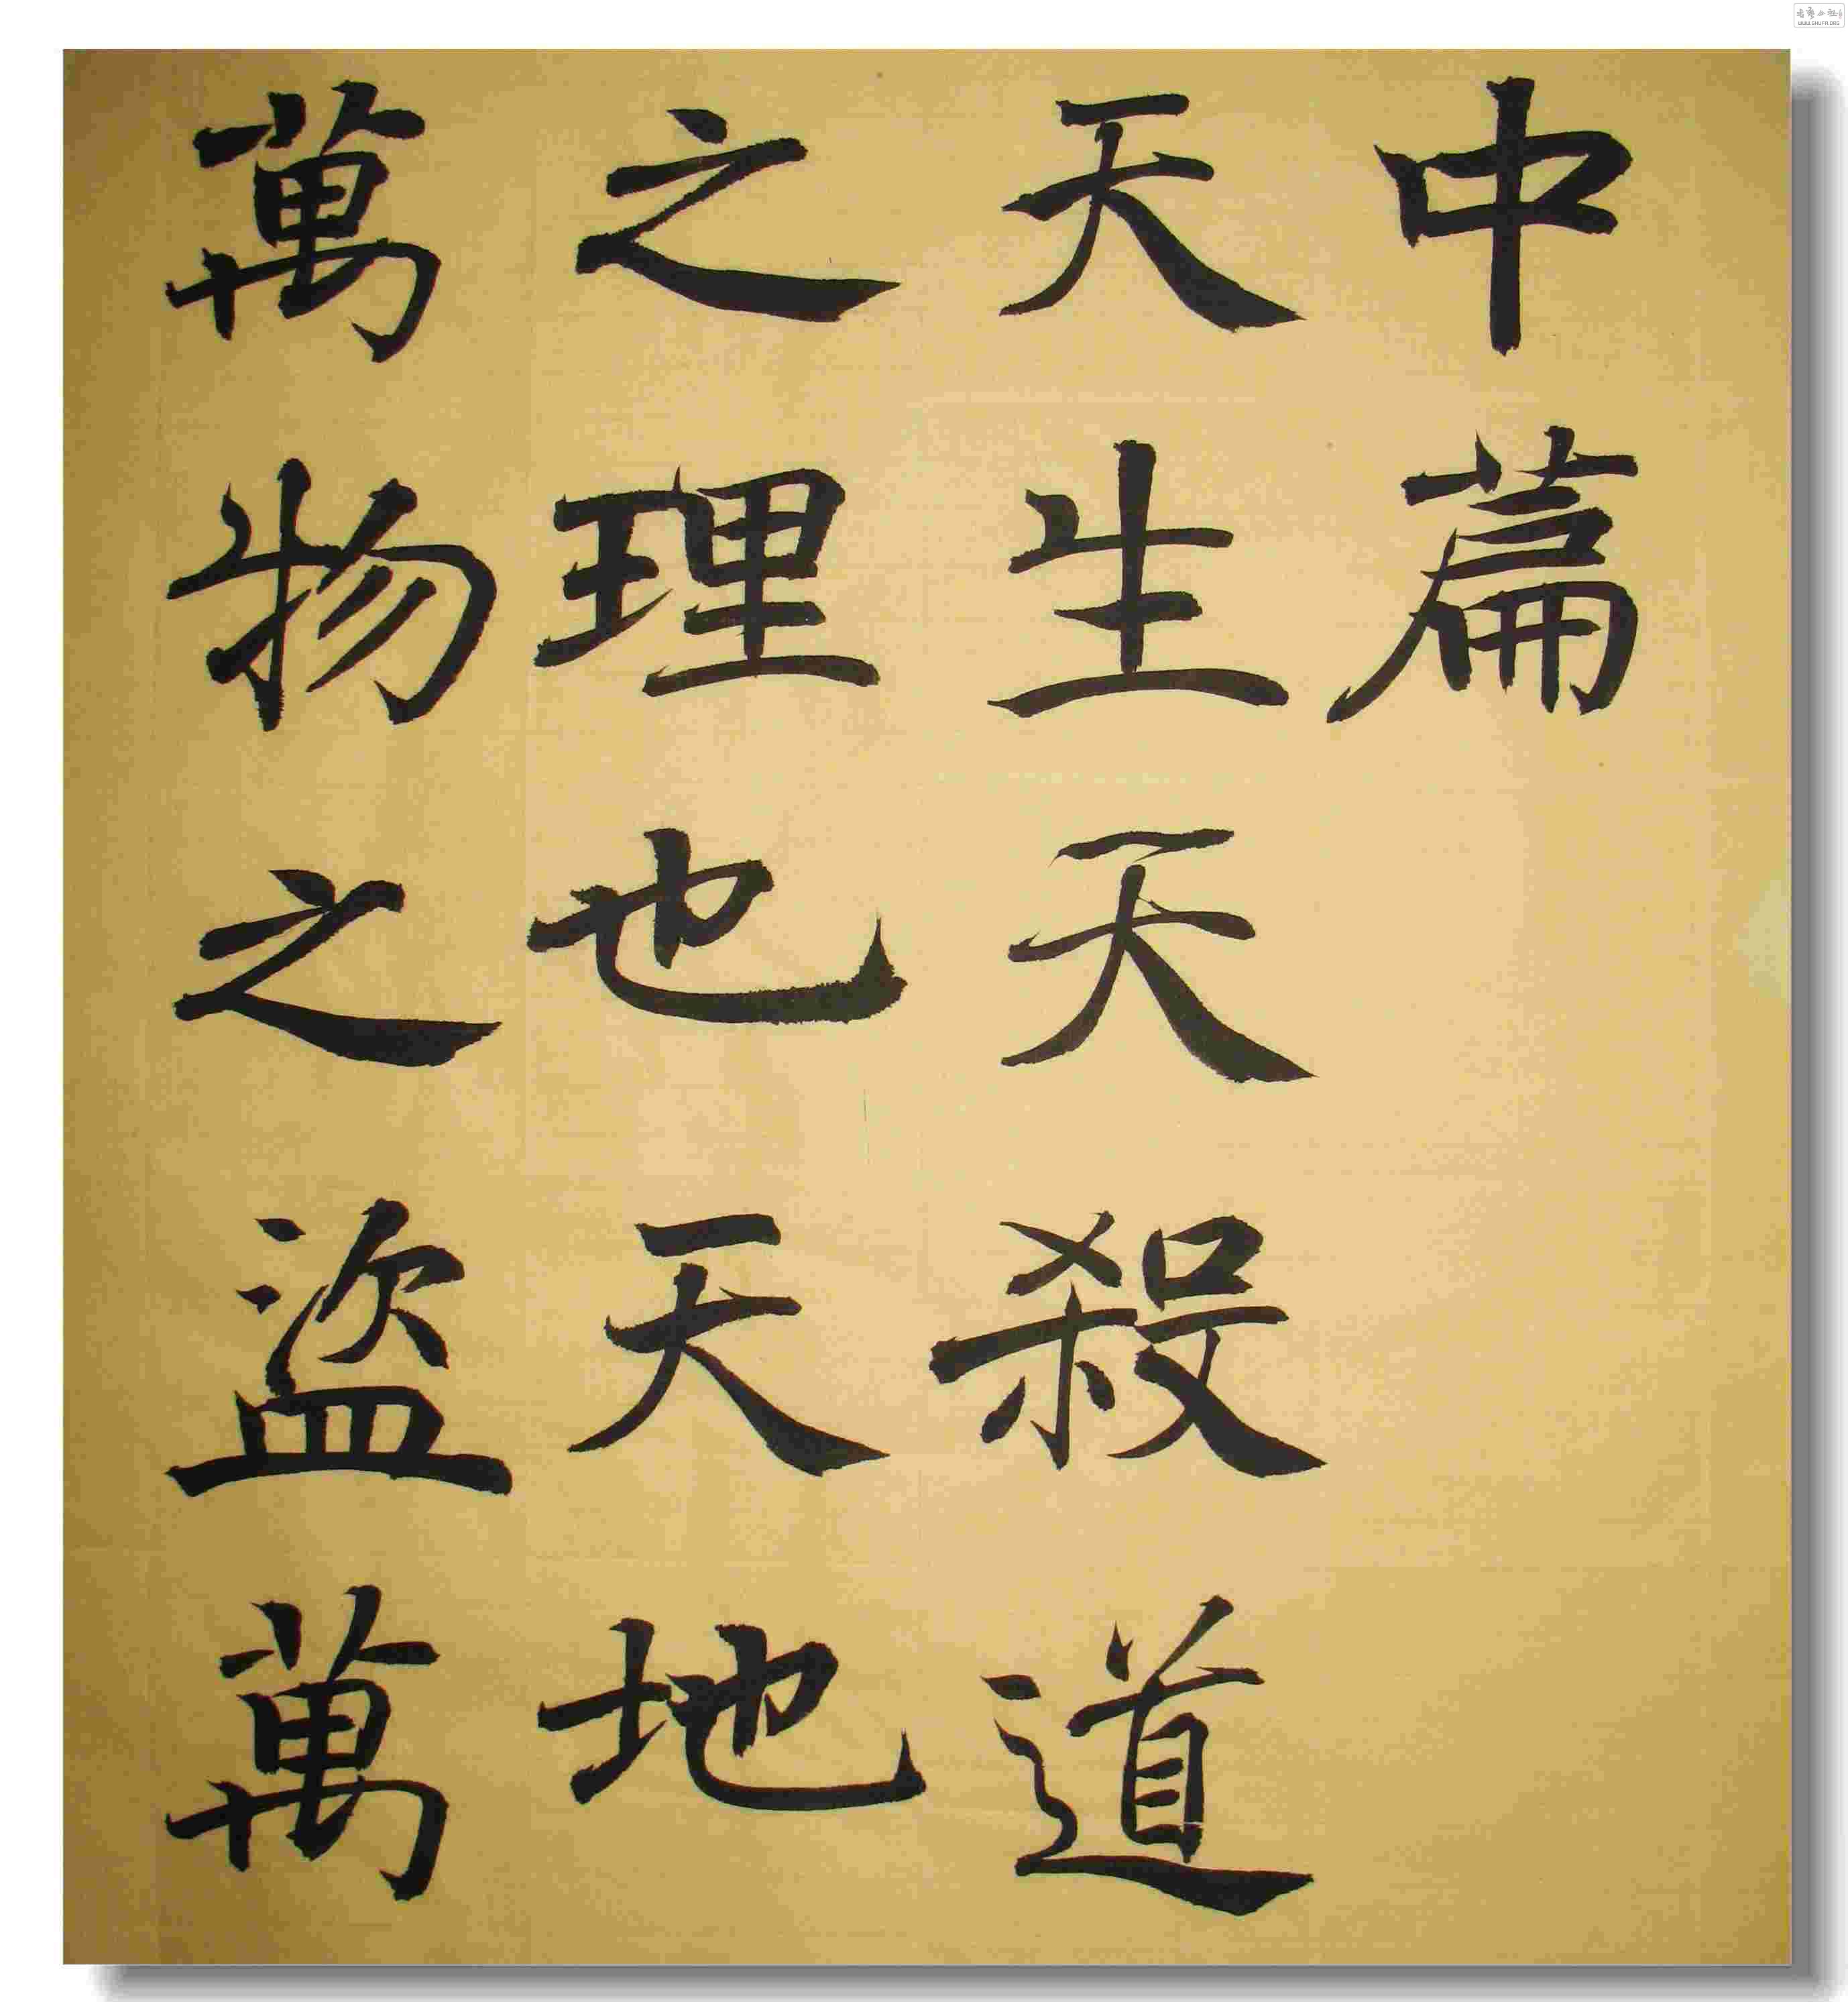 中篇
天生天殺道
之理也天地
萬物之盜萬
WWW.SHUFA.ORG